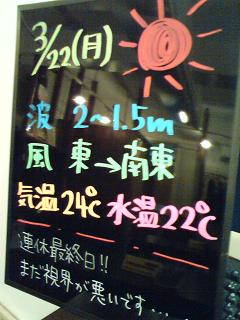 3/22(月)
波 2~1.5m
風 東→南東
気温24℃ 水温22℃
連休最終日!!
まだ視界が悪いです.....